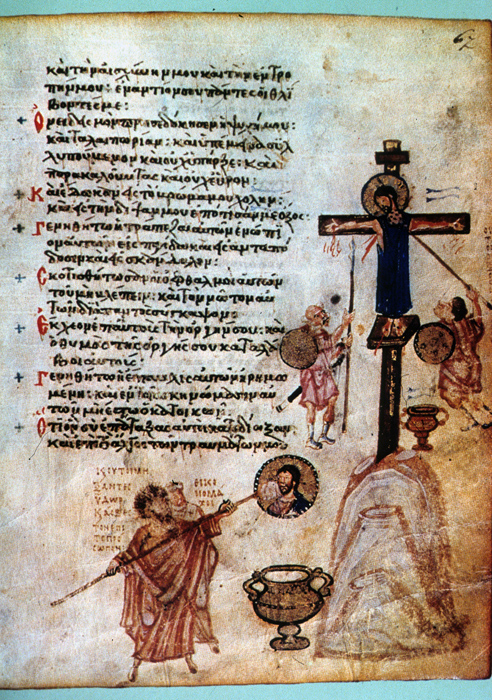 καὶ τὴν αἰσχύνην μου καὶ τὴν ἐντρο
πήν μου· ἐναντίον σου πάντες οἱ θλί
βοντές με:
Ὀνειδισμὸν προσεδόκησεν ἡ ψυχή μου:
καὶ ταλαιπωρίαν· καὶ ὑπέμεινα συλ
λυπούμενον καὶ οὐχ ὑπῆρξε· καὶ
παρακαλοῦντας καὶ οὐχ εὗρον:
Καὶ ἔδωκαν εἰς τὸ βρῶμά μου χολήν·
καὶ εἰς τὴν δίψαν μου ἐπότισάν με ὄξος:
Γενηθήτω ἡ τράπεζα αὐτῶν ἐνώπι
ον αὐτῶν εἰς παγίδα καὶ εἰς ἀνταπό
δοσιν καὶ εἰς σκάνδαλον:
Σκοτισθήτωσαν οἱ ὀφθαλμοὶ αὐτῶν
τοῦ μὴ βλέπειν· καὶ τὸν νῶτον αὐ
τῶν διὰ παντὸς σύγκαμψον:
Ἔκχεον ἐπ' αὐτοὺς τὴν ὀργήν σου· καὶ
ὁ θυμὸς τῆς ὀργῆς σου καταλά
βοι αὐτούς
Γενηθήτω ἡ ἔπαυλις αὐτῶν ἠρημω
μένη· καὶ ἐν τοῖς σκηνώμασιν αὐ
τῶν μὴ ἔστω ὁ κατοικῶν:
Ὅτι ὃν σὺ ἐπάταξας αὐτοὶ κατεδίωξαν·
καὶ ἐπὶ τὸ ἄλγος τῶν τραυμάτων μου
ὕδωρ